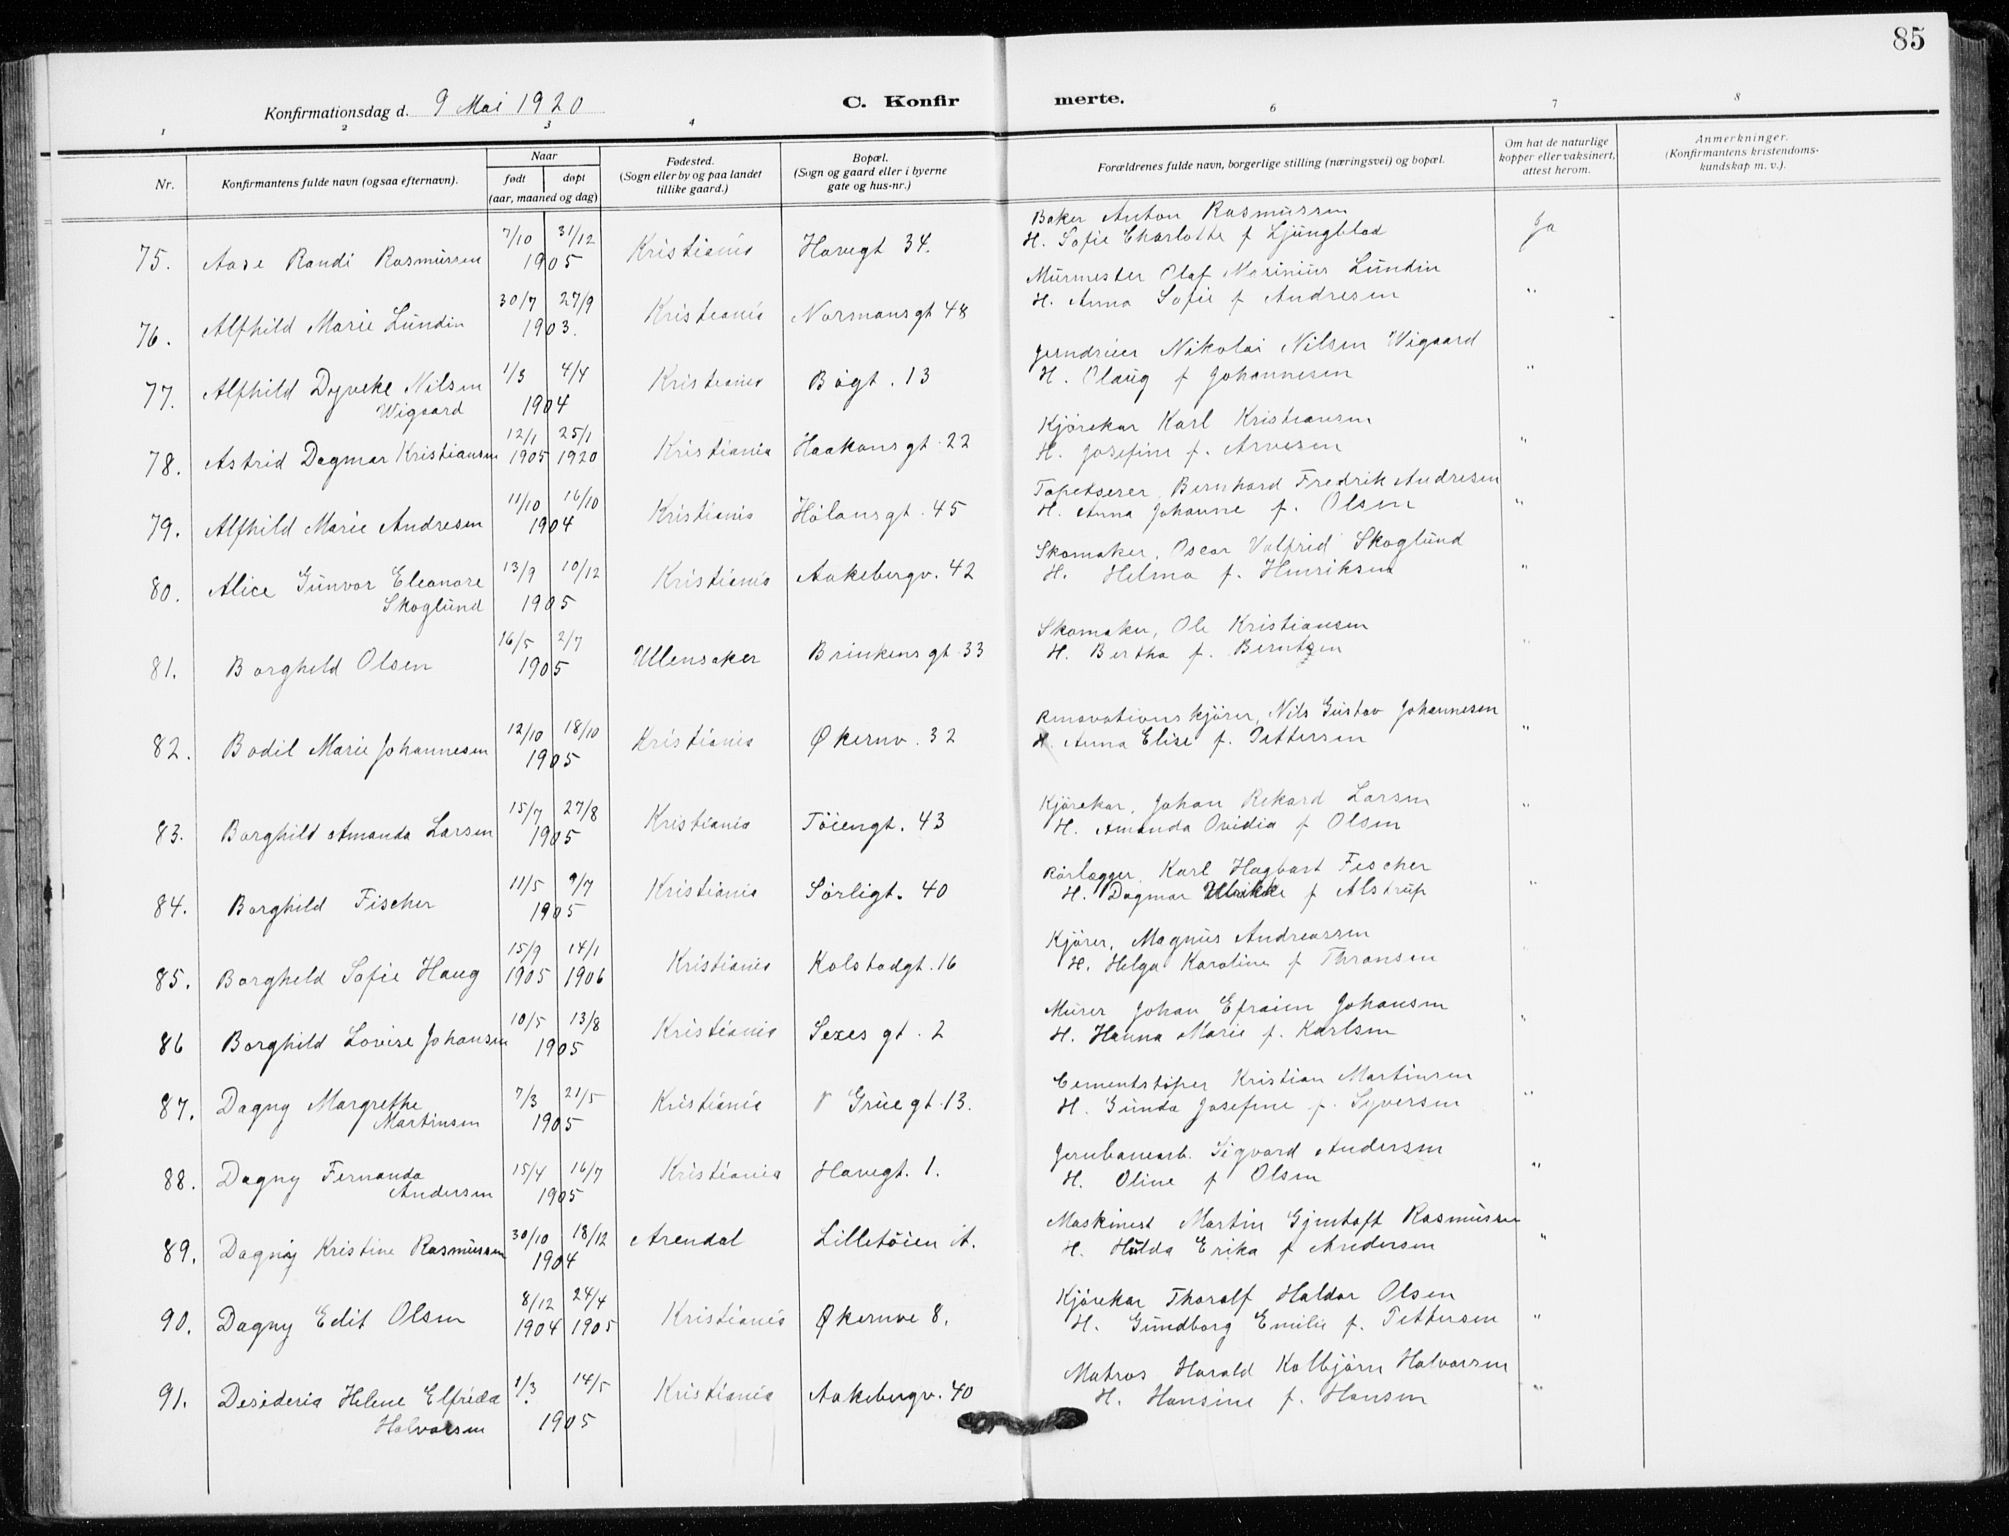 85
Konfirmationsdag d. 9 Mai 1920
C. Konfir merte.
1 2 3 4 6 7 8
Nr.
Konfirmantens fulde navn (ogsaa efternavn).
Naar
født døpt
(aar, maaned og dag)
Fødested.
(Sogn eller by og paa landet
tillike gaard.)
Bopæl.
(Sogn og gaard eller i byerne
gate og hus-nr.)
Forældrenes fulde navn, borgerlige stilling (næringsvei) og bopæl.
Om hat de naturlige
kopper eller vaksinert,
attest herom.
Anmerkninger.
(Konfirmantens kristendoms-
kundskap m. v.).
7/10 31/12 Baker Anton Rasmussen
75. Aase Randi Rasmussen 1905 Kristiania Havegt 34. H. Sofie Charlotte f Ljungblad Ja
30/7 27/9 Murmester Olaf Marinius Lundin
76. Alfhild Marie Lundin 1903. Kristiania Normansgt 48 H. Anna Sofie f Andresen "
1/3 4/4 Jerndreier Nikolai Nilsen Wigaard
77. Alfhild Dyveke Nilsen Kristiania Bøgt. 13 H. Olaug f Johannesen "
Wigaard 1904
12/1 25/1 Kjørekar Karl Kristiansen
78. Astrid Dagmar Kristiansen 1905 1920 Kristiania Haakonsgt. 22 H. Josefine f. Arvesen "
11/10 16/10 Tapetserer, Bernhard Fredrik Andresen
79. Alfhild Marie Andresen 1904 Kristiania Hølansgt. 45 H. Anna Johanne f. Olsen "
13/9 10/12 Skomaker, Oscar Valfrid Skoglund
80. Alice Gunvor Eleonore Kristiania Aakebergv. 42 H. Helma f. Henriksen "
Skoglund 1905
16/5 2/7 Skomaker, Ole Kristiansen
81. Borghild Olsen 1905 Ullensaker Brinkensgt. 33 H. Bertha f. Berntzen "
12/10 18/10 Renovationskjører, Nils Gustav Johannesen
82. Bodil Marie Johannesen 1905 Kristiania Økernv. 32 H. Anna Elise f. Pettersen "
15/7 27/8 Kjørekar, Johan Rikard Larsen
83. Borghild Amanda Larsen 1905 Kristiania Tøiengt. 43 H. Amanda Ovidia f Olsen "
11/5 9/7 Rørlægger, Karl Hagbart Fischer
84. Borghild Fischer 1905 Kristiania Sørligt. 40 H. Dagmar Ulrikke f Alstrup "
15/9 14/1 Kjører, Magnus Andreassen
85. Borghild Sofie Haug 1905 1906 Kristiania Kolstadgt. 16 H. Helga Karoline f Thransen "
10/5 13/8 Murer Johan Efraim Johansen
86 Borghild Lovise Johansen 1905 Kristiania Sexes gt. 2 H. Hanna Marie f. Karlsen "
7/3 21/5 Cementstøper Kristian Martinsen
87. Dagny Margrethe Kristiania Gruegt. 13. H. Gunda Josefine f. Syversen "
Martinsen 1905
15/4 16/7 Jernbanearb. Sigvard Andersen
88. Dagny Fernanda Kristiania Havegt. 1. H. Oline f Olsen "
Andersen 1905
30/10 18/12 Maskinist Martin Gjentoft Rasmussen
89. Dagny Kristine Rasmussen 1904 Arendal Lilletøien A. H. Hulda Erika f Andersen "
8/12 24/4 Kjørekar Thoralf Haldor Olsen
90. Dagny Edit Olsen 1904 1905 Kristiania Økernve 8. H. Gundborg Emilie f. Pettersen "
1/3. 14/5 Matros Harald Kolbjørn Halvorsen
91. Desideria Helene Elfrida Kristiania Aakebergv. 40 H. Hansine f. Hansen "
Halvorsen 1905